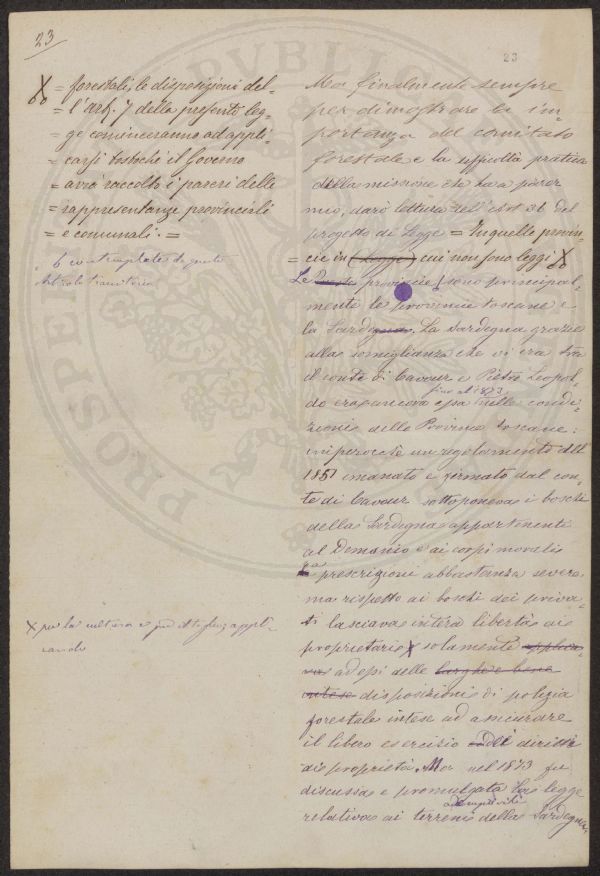 23
23
X = forestali, le disposizioni del=
= l'art. 7 della presente leg=
= ge cominceranno ad appli=
= carsi tostochè il Governo
= avrà raccolto i pareri delle
= rappresentanze provinciali
= e comunali. =
contemplate da questo
Articolo transitorio
X per la cultura e
appli-
cando
Ma finalmente sempre
per dimostrare la im=
portanza del comitato
forestale e la difficoltà pratica
della missione che ha a parer
mio, darò lettura dell'Art 36 del
progetto di Legge = In quelle provin=
= cie in (Legge) cui non sono leggi X
Le provincie sono principal=
mente le provincie toscane e
la Sardegna. La Sardegna grazie
alla somiglianza che vi era tra
il conte di Cavour e Pietro Leopol=
do era ancora essa fino al 1873 nelle condi=
zioni delle Provincie toscane:
imperocchè un regolamento del
1851 emanato e firmato dal con=
te di Cavour sottoponeva i boschi
della Sardegna appartenenti
al Demanio e ai corpi morali
a prescrizioni abbastanza severe,
ma rispetto ai boschi dei priva=
ti lasciava intera libertà ai
proprietari X solamente applica=
va ad essi delle larghe e bene
intese disposizioni di polizia
forestale intese ad assicurare
il libero esercizio del diritto
di proprietà. Ma nel 1873 fu
discussa e promulgata la legge
relativa ai terreni ademprivili della Sardegna,
PVBLIC
PROSPER